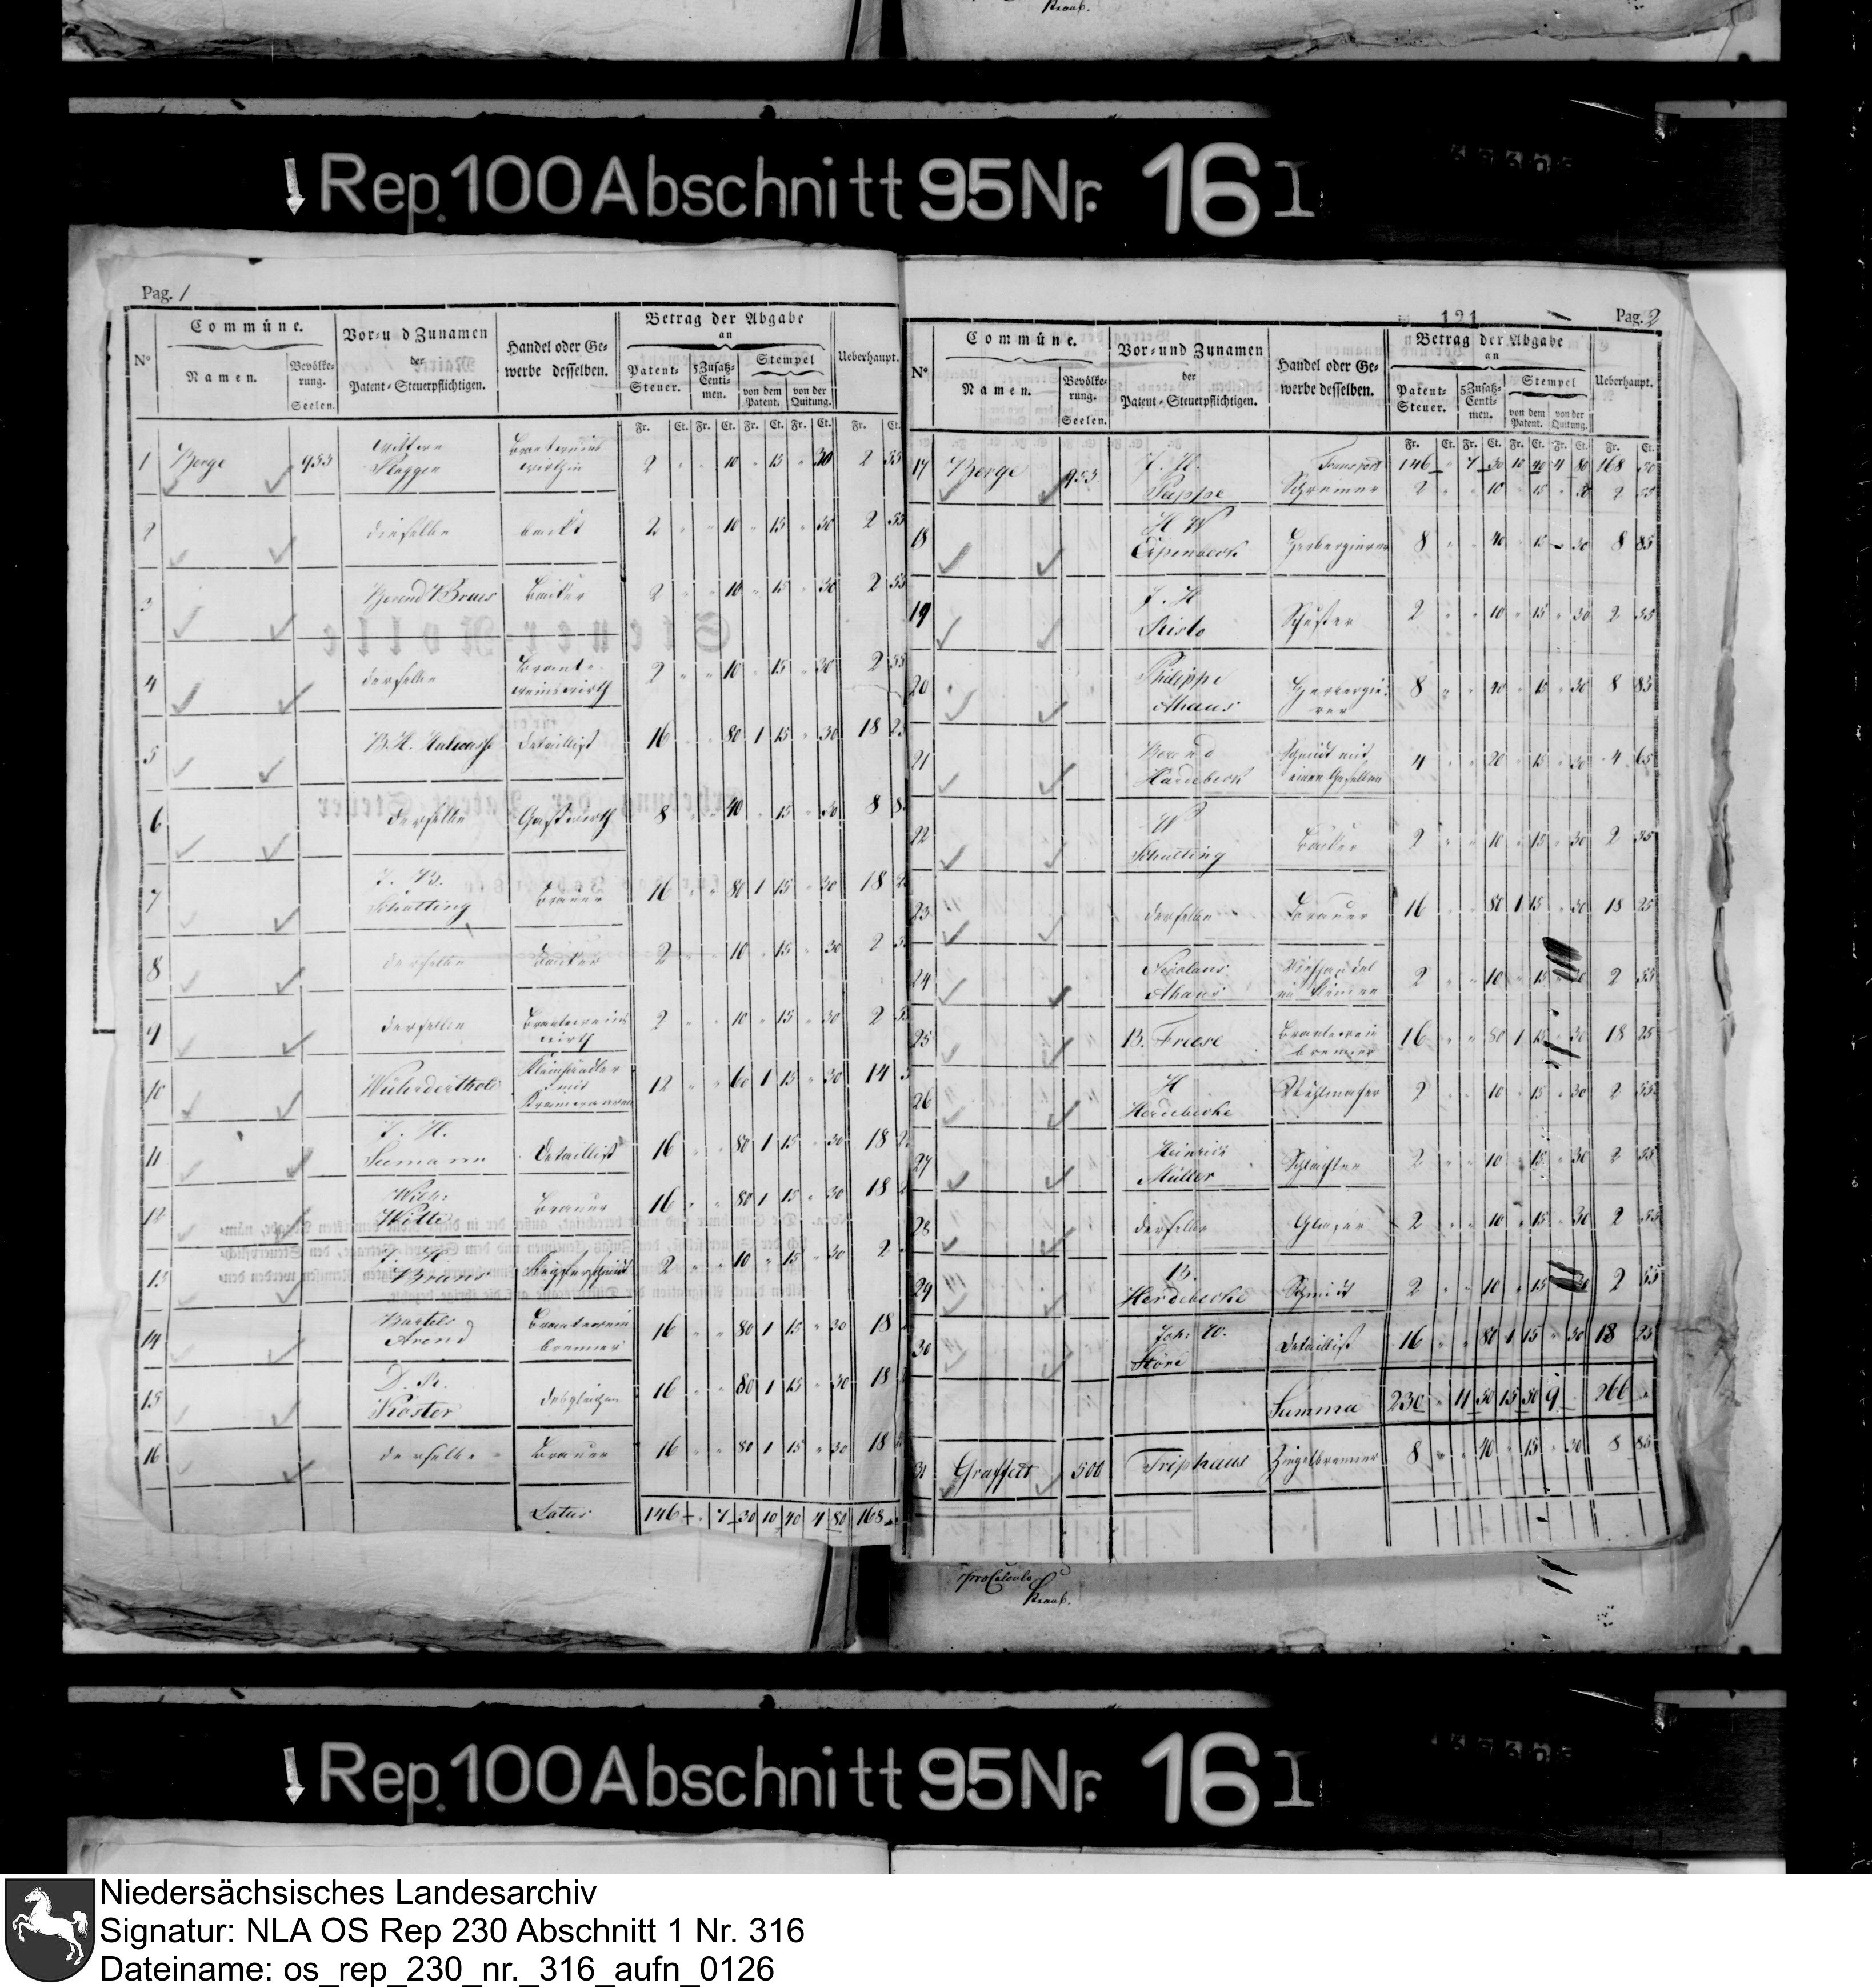 Kraus.
Rep. 100 Abschnitt 95 Nr. 16 I
Pag. 1
N° Commüne. Vor- u d Zunamen der Patent-Steuerpflichtigen. Handel oder Gewerbe desselben. Betrag der Abgabe an Ueberhaupt.
Namen. Bevölkerung. Seelen. Patent-Steuer. 5 Zusatz-Centimen. Stempel von dem Patent. von der Quitung.
Fr. Ct. Fr. Ct. Fr. Ct. Fr. Ct. Fr. Ct.
1 Berge 953 Wittwe Plaggen Brantweins wirthin 2 " " 10 " 15 " 30 2 55
2 dieselbe 2 " " 10 " 15 " 30 2 55
3 Berend Brues Bäcker 2 " " 10 " 15 " 30 2 55
4 derselbe Brantweinswirth 2 " " 10 " 15 " 30 2 55
5 B. H. Detaillist 16 " " 80 1 15 " 30 18 25
6 derselbe Gastwirth 8 " " 40 " 15 " 30 8 8
7 Schulting Brauer 16 " " 80 1 15 " 30 18 2
8 derselbe Bäcker 2 " " 10 " 15 " 30 2 5
9 derselbe Brantweins wirth 2 " " 10 " 15 " 30 2 5
10 Kleinhändler mit Krämerwaaren 12 " " 60 1 15 " 30 14
11 J. H. Seemann Detaillist 16 " " 80 1 15 " 30 18 2
12 Wilh: Witte Brauer 16 " " 80 1 15 " 30 18
13 J. H. Bruns 2 " " 10 " 15 " 30 2
14 Bartels Arend Brantwein brenner 16 " " 80 1 15 " 30 18
15 D. R. Köster desgleichen 16 " " 80 1 15 " 30 18
16 derselbe Brauer 16 " " 80 1 15 " 30 18
Latus 146 " 7 30 10 40 4 80 168
121
Pag. 2
N° Commüne. Vor- und Zunamen der Patent-Steuerpflichtigen. Handel oder Gewerbe desselben. Betrag der Abgabe an Ueberhaupt.
Namen. Bevölkerung. Seelen. Patent-Steuer. 5 Zusatz-Centimen. Stempel von dem Patent. von der Quitung.
Fr. Ct. Fr. Ct. Fr. Ct. Fr. Ct. Fr. Ct.
Transport 146 " 7 30 10 40 4 80 168 50
17 Berge 953 J. H. Pappe Schreiner 2 " " 10 " 15 " 30 2 55
18 H W Eipenbeck Herbergierer 8 " " 40 " 15 " 30 8 85
19 J. H Risto Schuster 2 " " 10 " 15 " 30 2 55
20 Philippe Ahaus Herbergierer 8 " " 40 " 15 " 30 8 85
21 Berend Hardebeck Schmidt mit einen Gesellen 4 " " 20 " 15 " 30 4 65
22 W Schulting Bäcker 2 " " 10 " 15 " 30 2 55
23 derselbe Brauer 16 " " 80 1 15 " 30 18 25
24 Nicolaus Ahaus 2 " " 10 " 15 " 30 2 55
25 B. Freese Brantwein brenner 16 " " 80 1 15 " 30 18 25
26 H Herdebecke Stuhlmacher 2 " " 10 " 15 " 30 2 55
27 Heinrich Müller Schlachter 2 " " 10 " 15 " 30 2 55
28 derselbe Glaser 2 " " 10 " 15 " 30 2 55
29 B. Herdebecke Schmidt 2 " " 10 " 15 " 30 2 55
30 Joh: W. Störe Detaillist 16 " " 80 1 15 " 30 18 25
Summa 230 " 11 50 15 50 9 " 266 "
31 Graffett 500 Triphaus Ziegelbrenner 8 " " 40 " 15 " 30 8 85
pro Calculo
Kraus.
Rep. 100 Abschnitt 95 Nr. 16 I
Niedersächsisches Landesarchiv
Signatur: NLA OS Rep 230 Abschnitt 1 Nr. 316
Dateiname: os_rep_230_nr._316_aufn_0126